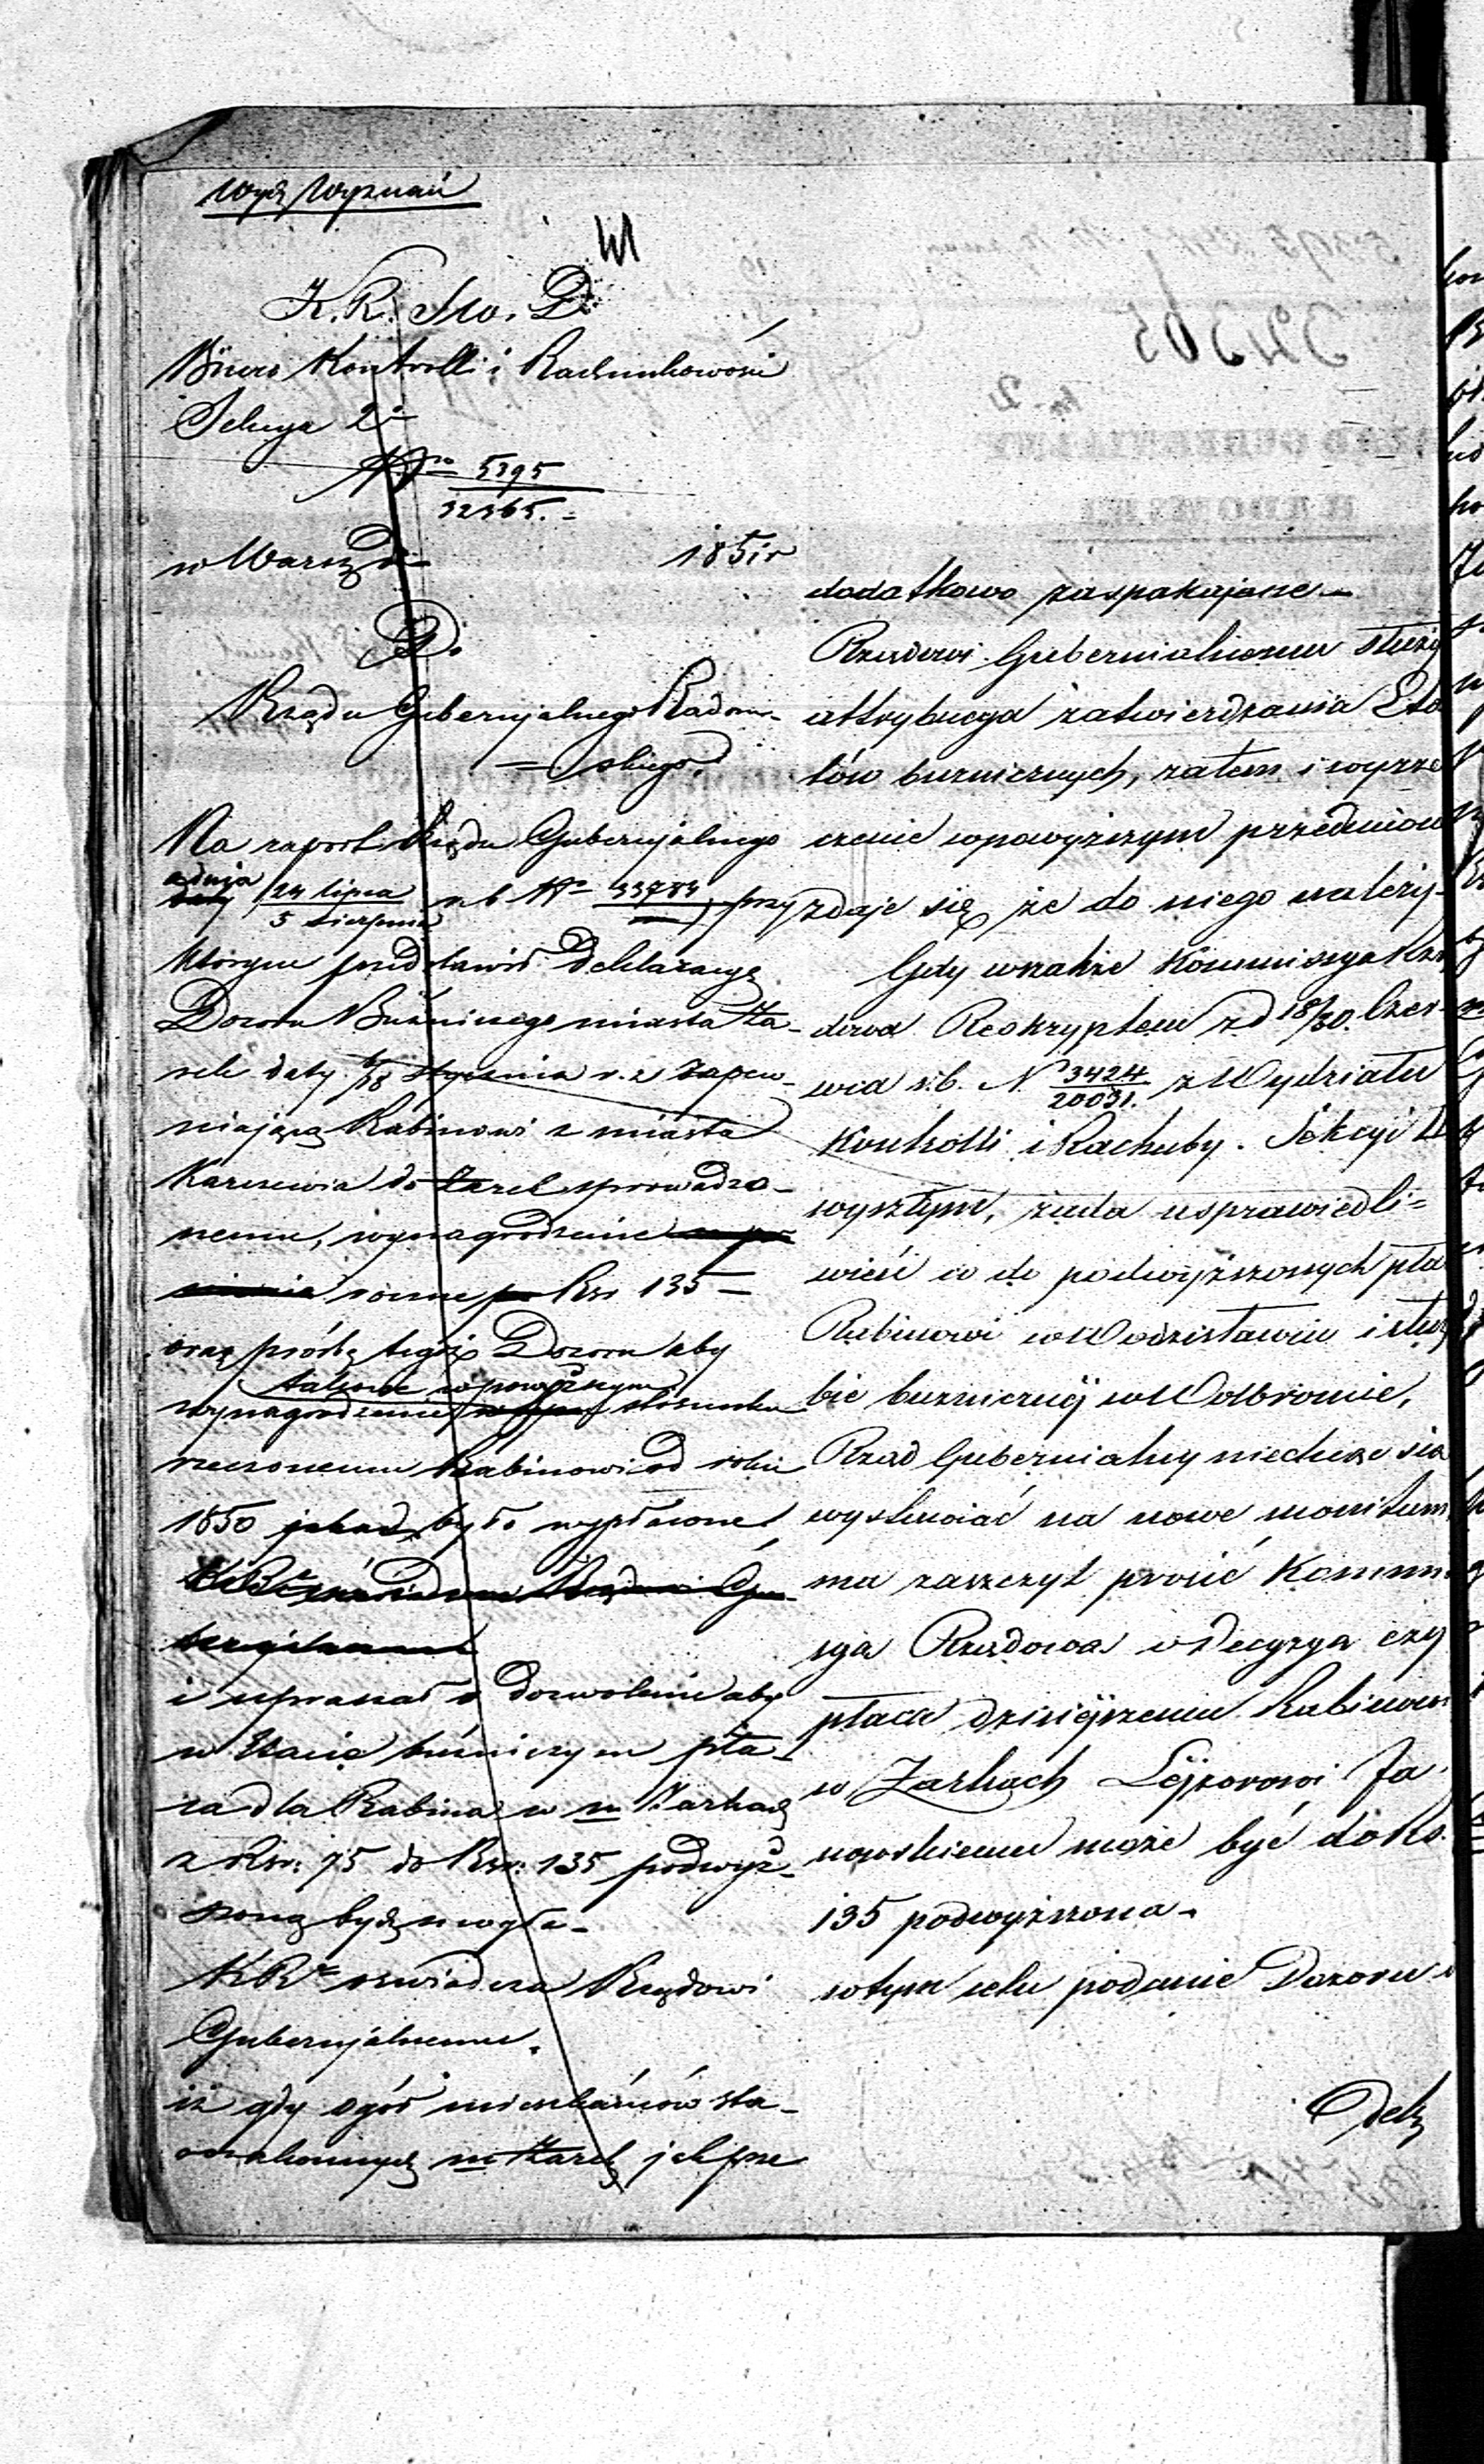 Wydz Wyznań
K. R. S. W. D.
Biuro Kontrolli i Rachunkowości
Sekcya 2a
Nro 5395
32365.
w Warsz d. 1851 r
D.
Rządu Gubernjalnego Radom-
= skiego.
Na raport Rządu Gubernjalnego
z dnia
24 lipca
5 sierpnia
r b No 33784, przy
którym przedstawił Deklaracyę
Dozoru Bużniczego miasta Ża-
rek daty 6/18 stycznia r. z zapew-
niającą Rabinowi z miasta
do Żarek sprowadzo-
nemu, wynagrodzenie
roczne po Rsr 135 -
oraz prośbę tegoż Dozoru aby
takowe w powyższym
wynagrodzenie stosunku
rzeczonemu Rabinowi od roku
1850 było wypłacone
i upraszał o dozwolenie aby
w Etacie bużniczym pła-
ca dla Rabina w m Żarkach
z Rsr: 75 do Rsr: 135 podwyż-
szoną być mogła -
KRa oświadcza Rządowi
Gubernjalnemu.
iż gdy ogół mieszkańców sta-
rozakonnych m Żarek
dodatkowo zaspakajane -
Rządowi Gubernialnemu służy
attrybucya zatwierdzania Eta
tów bużniczych, zatem i wyrze
czenie w powyższym przedmiow
zdaje się że do niego należy -
Gdy wszakże Kommissya Rzą
dowa Reskryptem z d 18/30. Czer-
wca r.b. N 3424
20031. z Wydziału
Kontrolli i Rachuby. Sekcyi
wyszłym, żąda usprawiedli=
wień co do podwyższonych płac
Rabinowi w Wodzisławiu i służ
bie bużniczey w Wolbromie,
Rząd Gubernialny niechcąc się
wystawiać na nowe monitum
ma zaszczyt prosić Kommis
sya Rządowa o decyzya czy
płaca dzisiejszemu Rabinowi
w Żarkach Lejzorowi Ja
nowskiemu może być do Rs.
135 podwyższona -
w tym celu podanie Dozoru